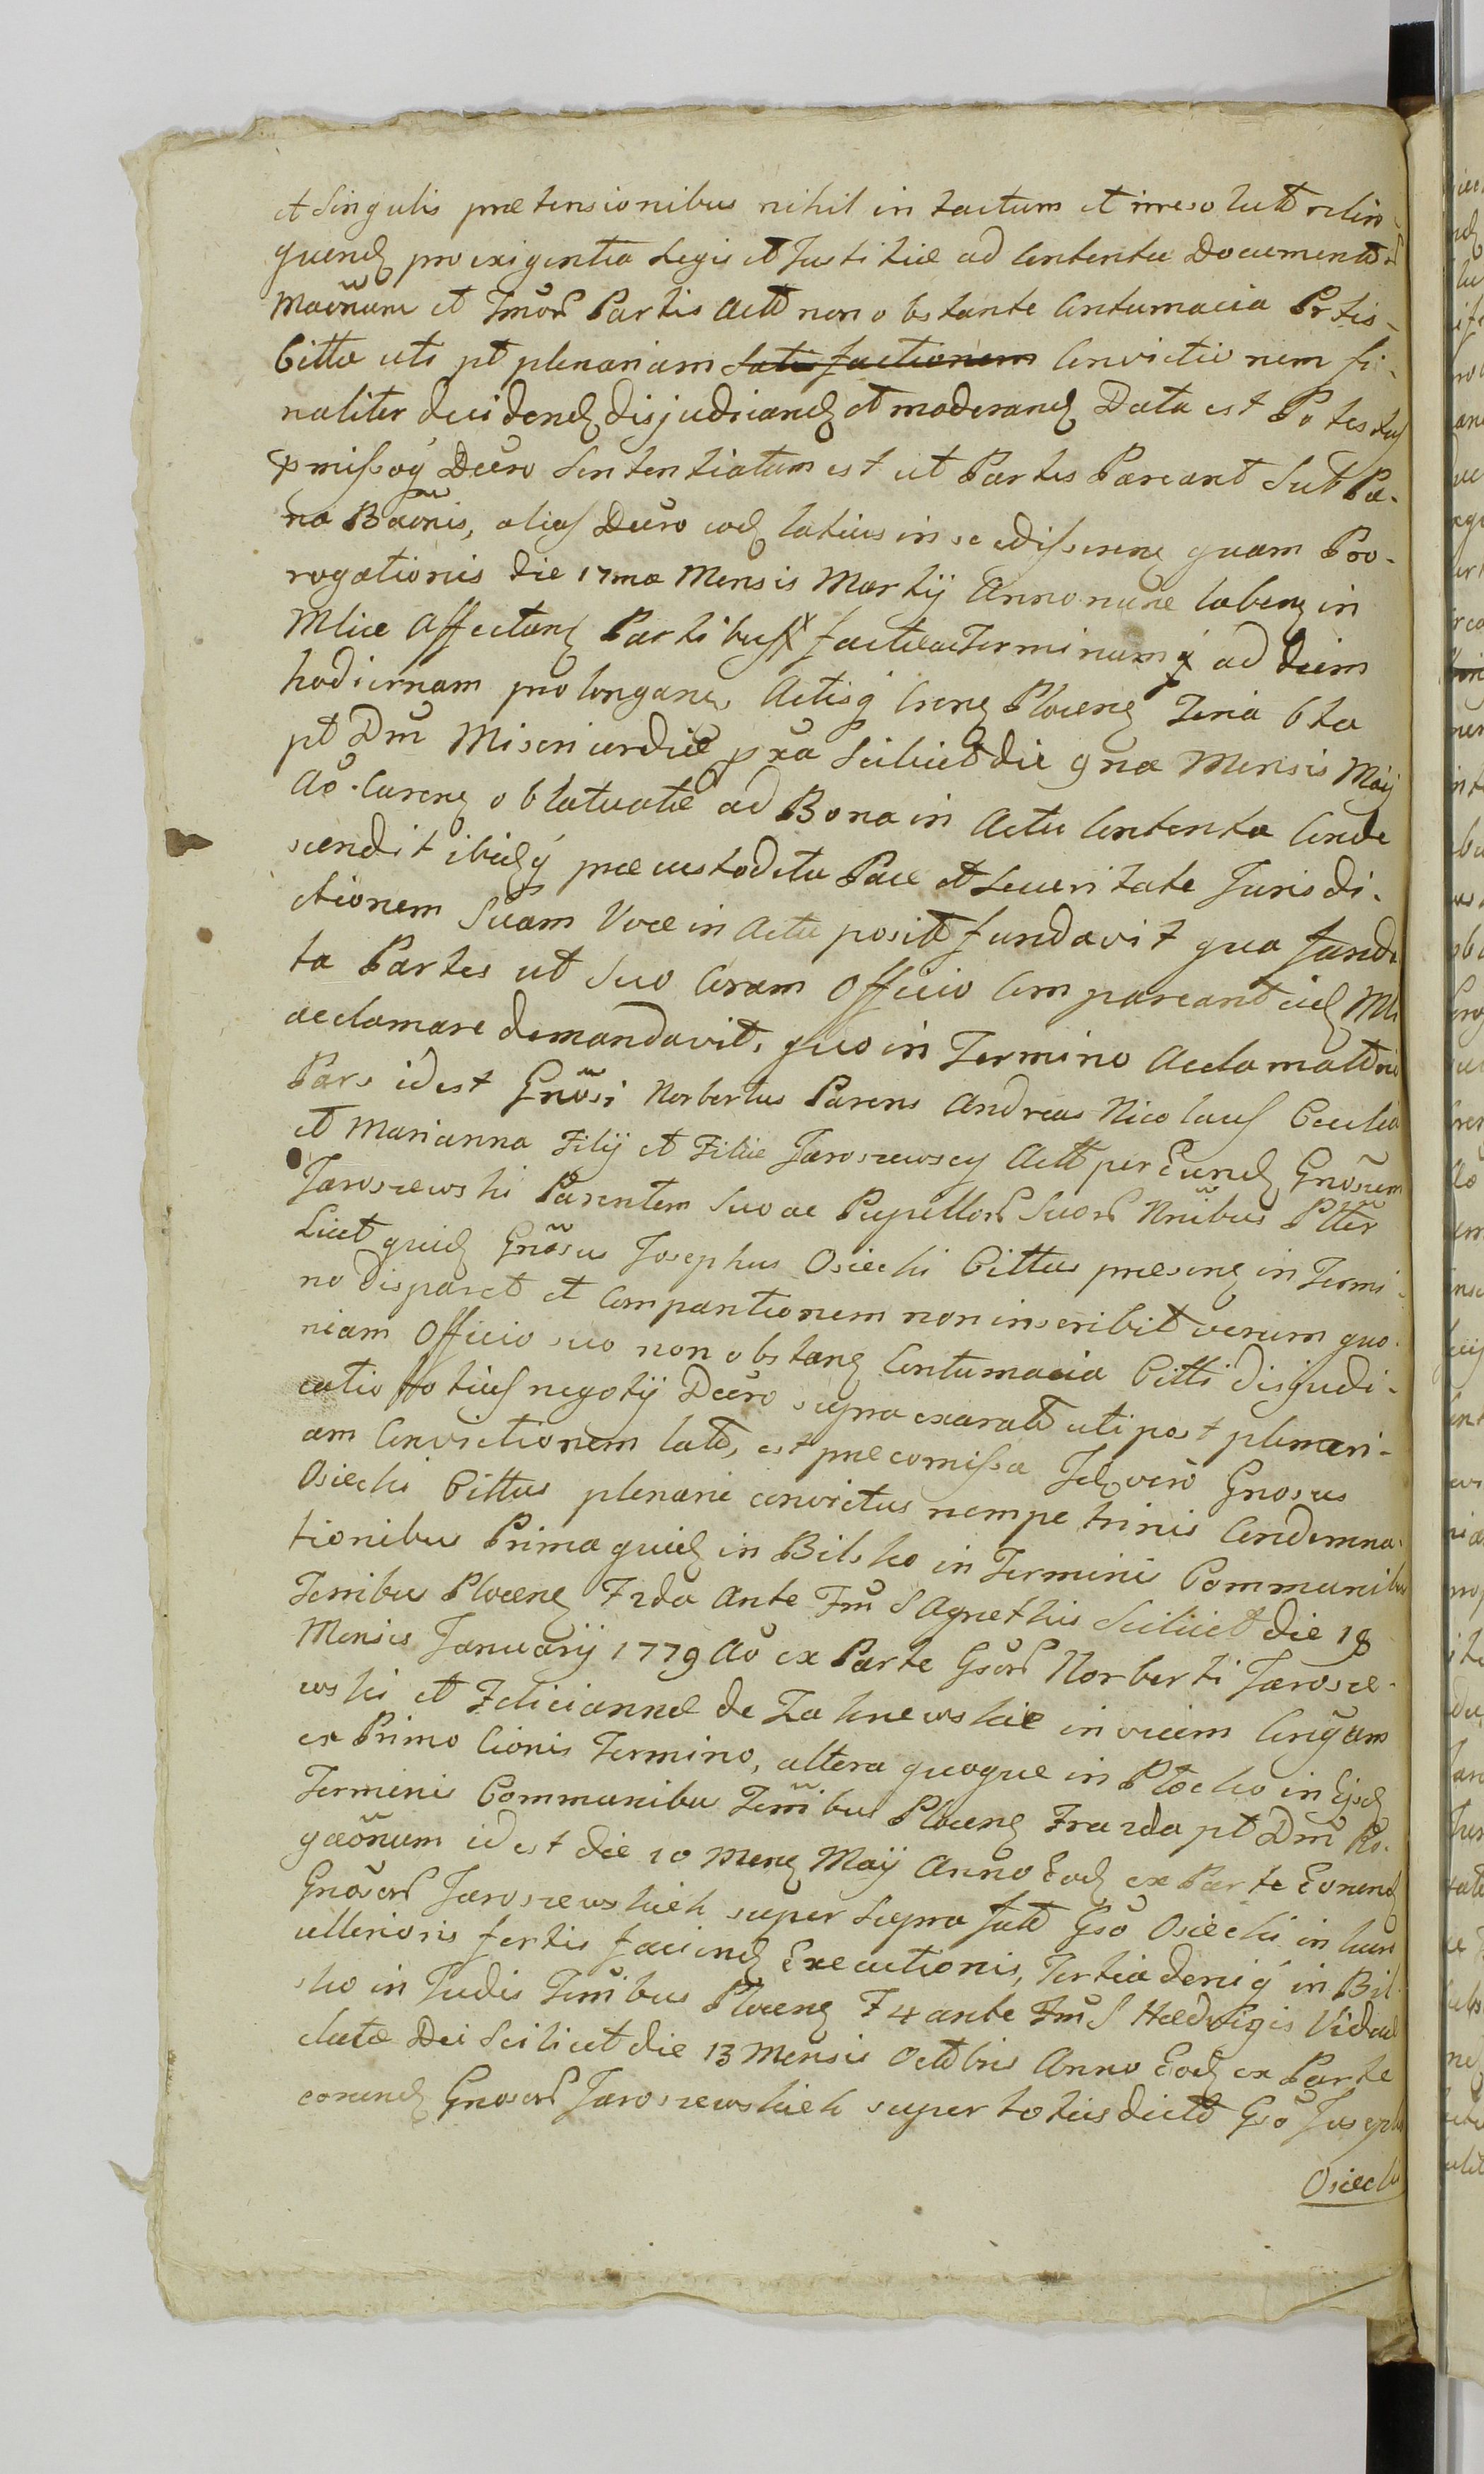 et Singulis prætensionibus nihil in tactum et irresolutõ relin-
quend pro exigentia Legis et Justitiæ ad Contenta Documentor
Maõnum et Jmũor Partis Actõ non obstante Contumacia Prtis
Cittæ uti pt plenariam Satisfactionem Convictionem fi-
naliter decidend disjudicand et moderand Data est Potestas
pmissoq Decro Sententiatum est ut Partes Pareant Sub Pœ-
na Baõnis, alias Decro eod latius in se edisseren quam Pro-
rogationis die 17mæ Mensis Martij Anno nunc laben in
Mlicæ Affectan Partibus factæ ac Terminumq ad diem
hodiernam prolongan, Actisq Cren Plocen Feria 6ta
pt Dm̃ Misericordiæ pxa Scilicet die 9næ Mensis Maij
Aõ. Curren oblatuatæ ad Bona in Actu Contenta Conde
scendit ibidq præcustodita Pace et Securitate Jurisdi-
ctionem Suam Voce in Actu positõ fundavit qua funda
ta Partes ut Suo Coram Officio Compareant eid Mli
acclamare demandavit, quo in Termino Acclamatõrio
Pars idest Gnõsi Norbertus Parens Andreas Nicolaus Cecilia
et Marianna Filij et Filiæ Jaroszewscy Actõ per Eund Gnõsum
Jaroszewski Parentem Suo ac Pupillor Suor Nnĩbus Pltẽr
Licet quid Gnõsus Josephus Osiecki Cittus præsen in Termi-
no disparet et Comparitionem non inscribit verum quo-
niam Officio suo non obstan Contumacia Citti disjudi-
catio totius negotij Decro supra exaratõ uti post plenari-
am Convictionem latõ, est præcomissa Id vero Gnosus
Osiecki Cittus plenarie convictus nempe trinis Condemna-
tionibus Prima quid in Bilsko in Terminis Communibus
Terribus Plocen F 2da Ante Fm̃ S Agnethis Scilicet die 18
Mensis Januarij 1779 Aõ ex Parte Gsõr Norberti Jarosze-
wski et Feliciannæ de Zaknewskie invicem Cõngum
ex Primo Cionis Termino, altera quoque in Płocko in Ejsd
Terminis Communibus Terrĩbus Plocen Fra 2da pt Dm̃ Ro-
gaõnum idest die 10 Men Maij Anno Eod ex Parte Eorund
Gnõsor Jaroszewskich super Supra fatõ Gsõ Osiecki in lucri
ulterioris fertis faciend Executionis, Tertia deniq in Bil-
sko in Judis Terrĩbus Plocen F 4 ante Fm̃ S Hedvigis Viduæ
lectæ Dei Scilicet die 13 Mensis Octõbris Anno Eod ex Parte
eorund Gnosor Jaroszewskich super totiesdictõ Gsõ Josepho
Osiecki